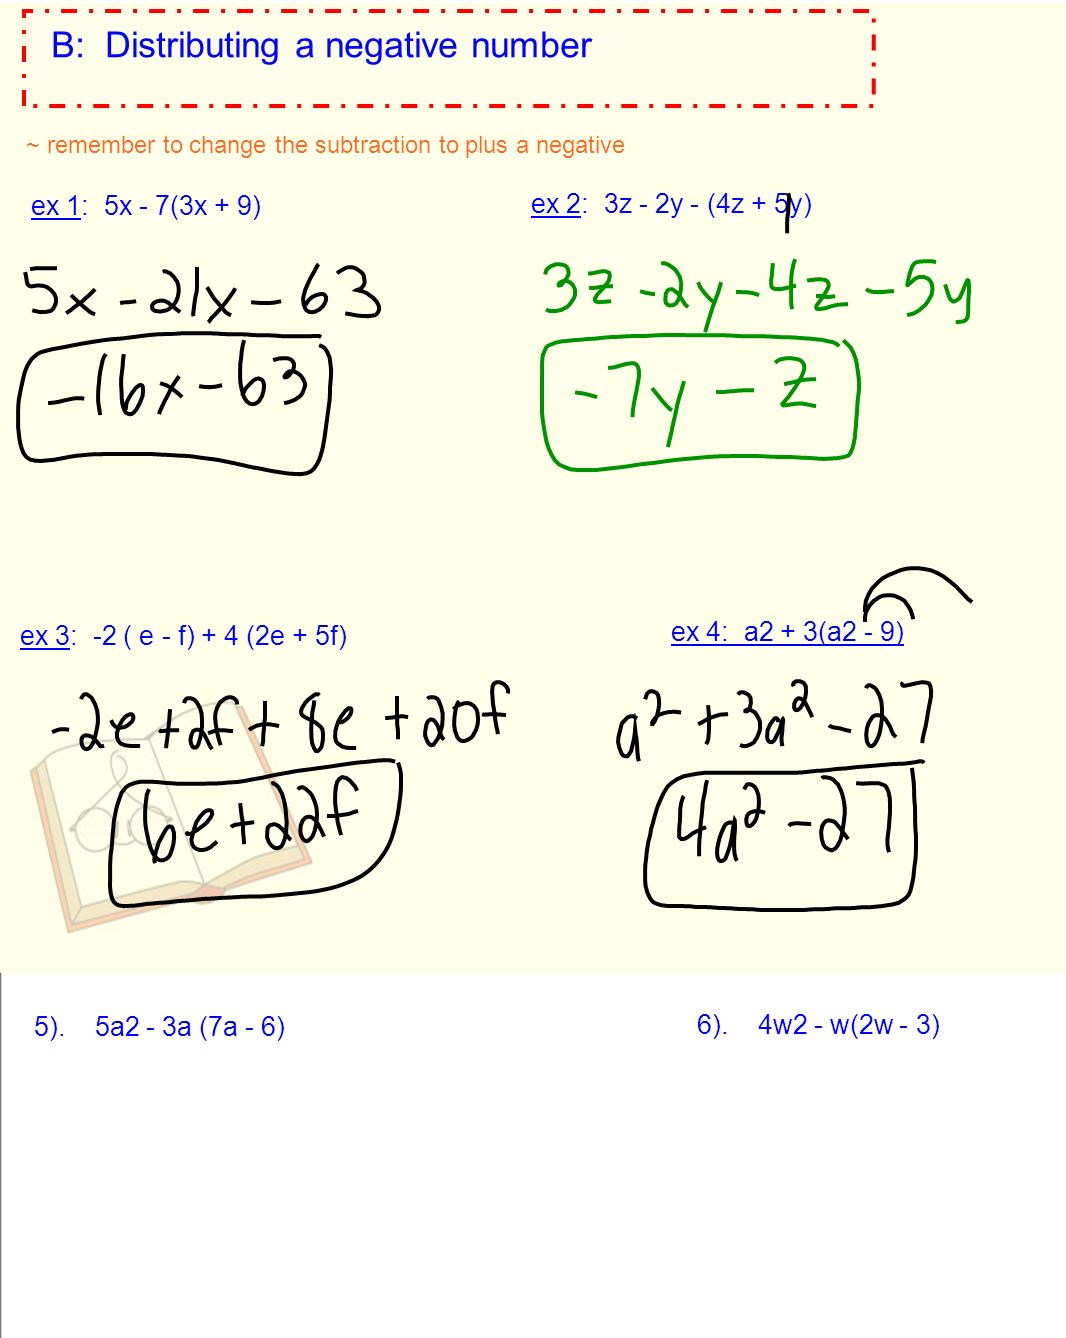 B: Distributing a negative number
~ remember to change the subtraction to plus a negative
ex 1: 5x - 7(3x + 9)
5x - 21x - 63
-16x - 63
ex 2: 3z - 2y - (4z + 5y)
3z - 2y - 4z - 5y
-7y - z
ex 3: -2 ( e - f) + 4 (2e + 5f)
-2e + 2f + 8e + 20f
6e + 22f
ex 4: a2 + 3(a2 - 9)
a² + 3a² - 27
4a² - 27
5). 5a2 - 3a (7a - 6)
6). 4w2 - w(2w - 3)